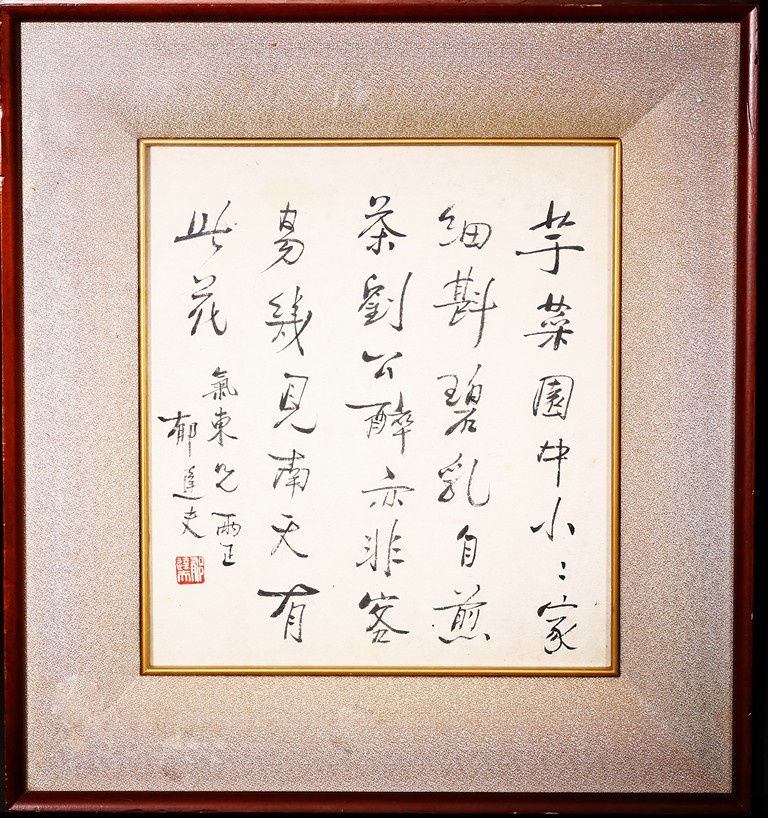 芋菜園中小〻家
細斟碧乳自煎
茶劉公醉亦非容
易幾見南天有
此花
氣東兄 正
郁達夫